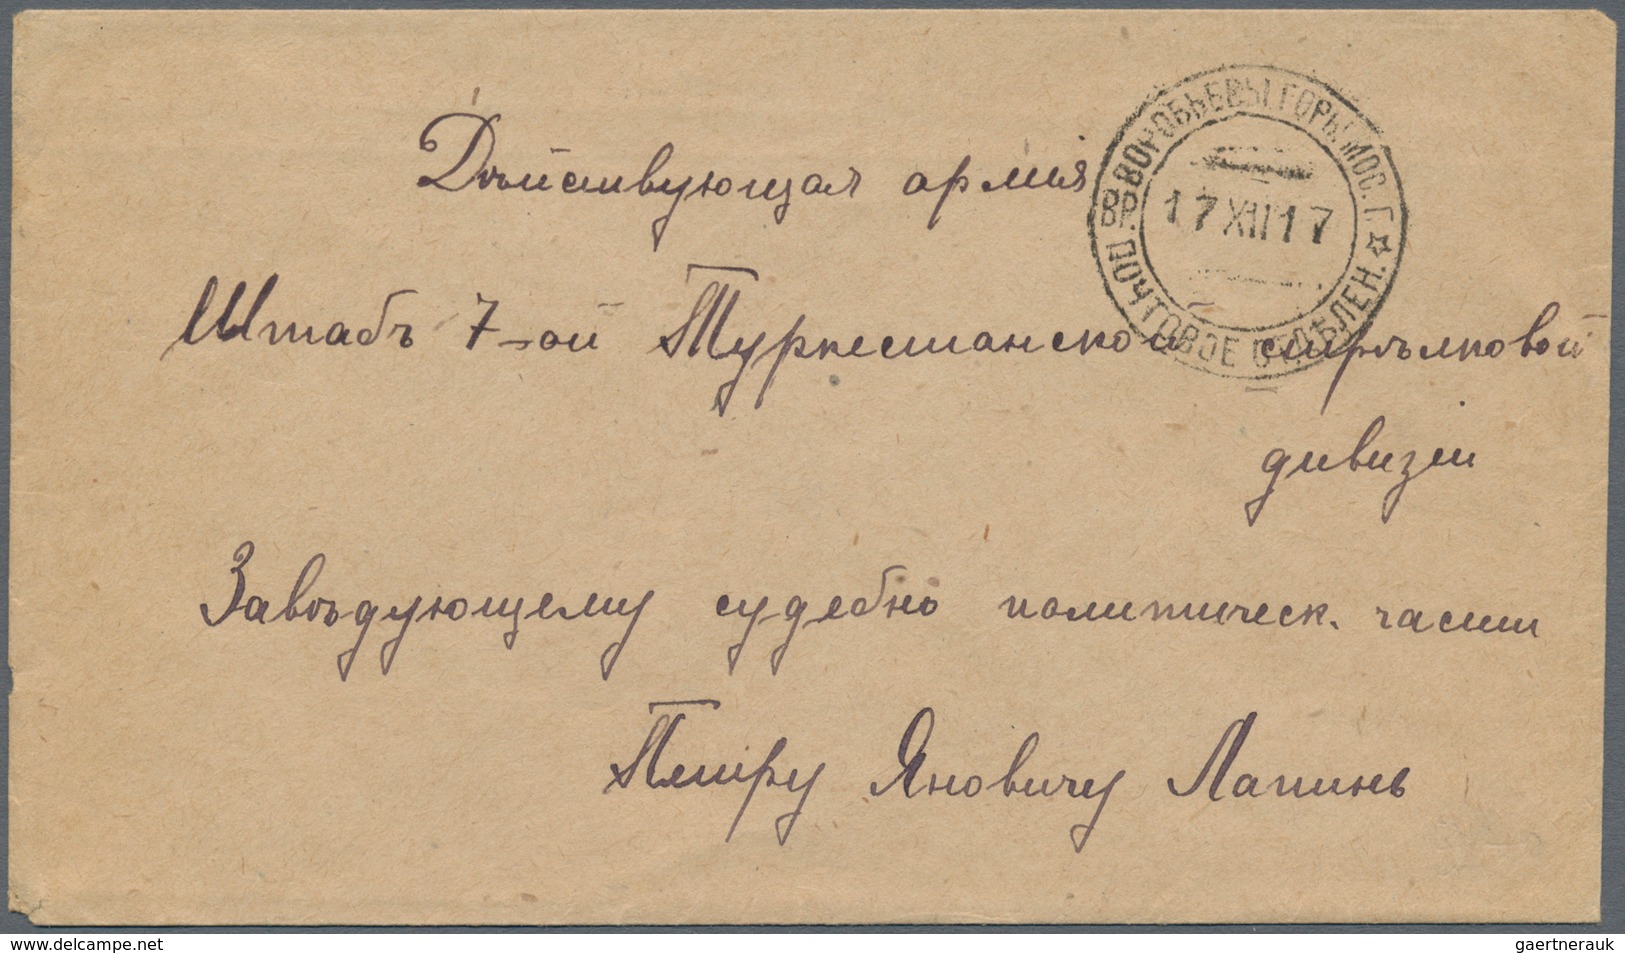 Дѣйствующая армія
Штабъ 7-ой Туркестанской стрѣлковой
дивизіи
Завѣдующему судебно политическ. части
Петру Яновичу Лапинь
ВР. ВОРОБЬЕВЫ ГОРЫ МОС. Г. ☆
17 XII 17
ПОЧТОВОЕ ОТДѢЛЕН.
www.delcampe.net
gaertnerauk